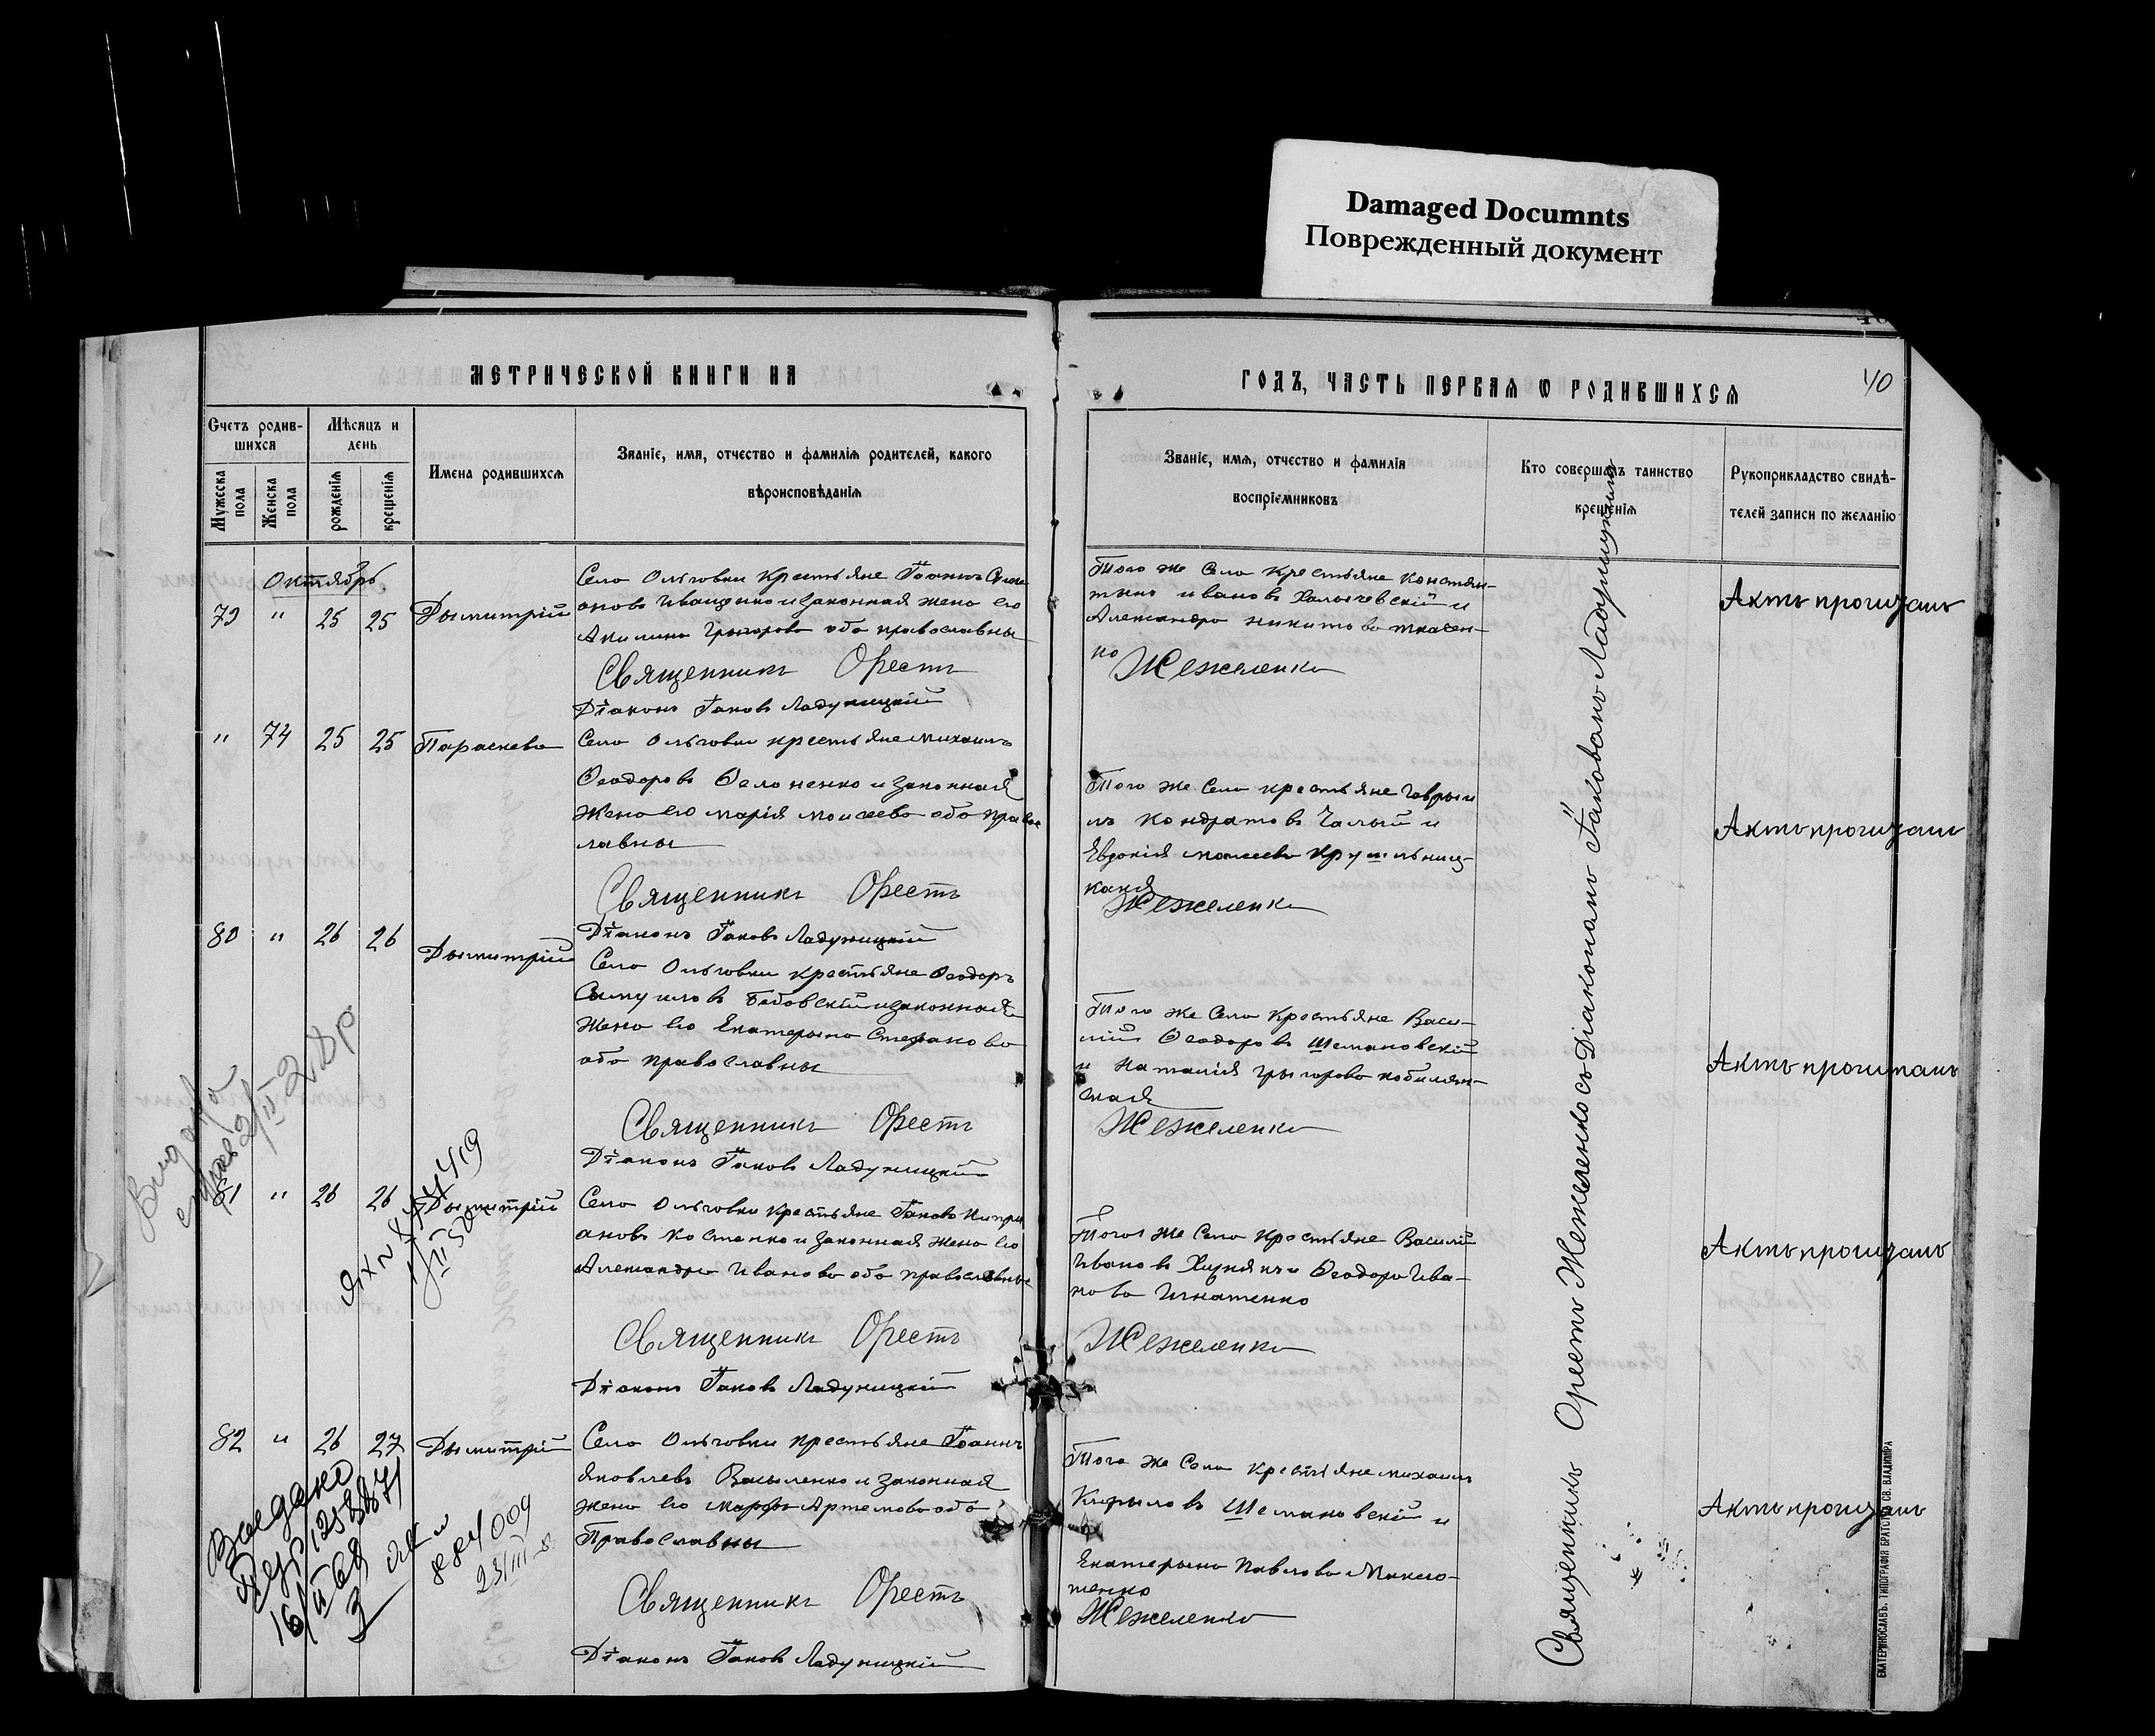 Damaged Documnts
Поврежденный документ
МЕТРИЧЕСКОЙ КНИГИ НА
ГОДЪ, ЧАСТЬ ПЕРВАЯ Ѡ РОДИВШИХСЯ
40
Счетъ родив-
шихся
Мужеска пола
Женска пола
Мѣсяцъ и
день
рожденія
крещенія
Имена родившихся
Званіе, имя, отчество и фамилія родителей, какого
вѣроисповѣданія
Званіе, имя, отчество и фамилія
воспріемниковъ
Кто совершалъ таинство
крещенія
Рукоприкладство свидѣ-
телей записи по желанію
Октябрь
79 " 25 25 Дымитрій
Села Ольговки крестьяне Іоаннъ Симе
оновъ Иващенко и законная жена его
Акилина Григорова оба православны
Священникъ Орестъ
Діаконъ Іаковъ Ладужицкій
Того же Села Крестьяне Констан-
тинъ Ивановъ Халычевскій и
Александра Никитова Ткачен-
ко
Жежеленко
Актъ прочиталъ
" 74 25 25 Параскева
Села Ольговки крестьяне Михаилъ
Ѳеодоровъ и законная
жена его Марія Моисеева оба право
лавны
Священникъ Орестъ
Діаконъ Іаковъ Ладужицкій
Того же Села крестьяне Гаврыи
лъ Кондратовъ Чалый и
Евдокія Моисеева
кая
Жежеленко
Актъ прочиталъ
80 " 26 26 Дымитрій
Села Ольговки крестьяне Ѳеодоръ
Самуиловъ и законная
жена его Екатерына Стефанова
оба православны
Священникъ Орестъ
Діаконъ Іаковъ Ладужицкій
Того же Села Крестьяне Васи-
лій Ѳеодоровъ Шемановскій
и Наталія Грыгорова
ская
Жежеленко
Актъ прочиталъ
81 " 26 26 Дымитрій
Села Ольговки крестьяне Іаковъ Кипри
ановъ Костенко и законная жена его
Александра Иванова оба православны
Священникъ Орестъ
Діаконъ Іаковъ Ладужицкій
Того же Села Крестьяне Василій
Ивановъ и Ѳеодора Ива-
нова Игнатенко
Жежеленко
Актъ прочиталъ
82 " 26 27 Дымитрій
Села Ольговки крестьяне Іоаннъ
Яковлевъ Васыленко и законная
жена его Марфа Артемова оба
Православны
Священникъ Орестъ
Діаконъ Іаковъ Ладужицкій
Того же Села Крестьяне Михаилъ
Кирыловъ Шемановскій и
Екатерына Павлова
тенко
Жежеленко
Актъ прочиталъ
Священникъ Орестъ Жежеленко съ Діакономъ Іаковомъ Ладужицкимъ
ЕКАТЕРИНОСЛАВЪ. ТИПОГРАФІЯ БРАТСТВА СВ. ВЛАДИМІРА